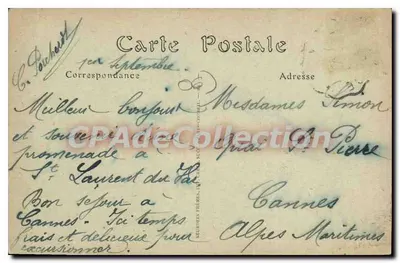 1er Septembre.
Carte Postale
Correspondance
Adresse
Meilleur bonjour
et souvenir d'une
promenade à
St Laurent du Var
Bon séjour à
Cannes. Ici temps
frais et délicieux pour
excursionner.
Mesdames Simon
Quai St Pierre
Cannes
Alpes Maritimes
CPADeCollection.com